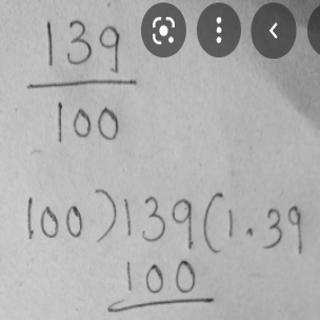 139
100
100)139(1.39
100